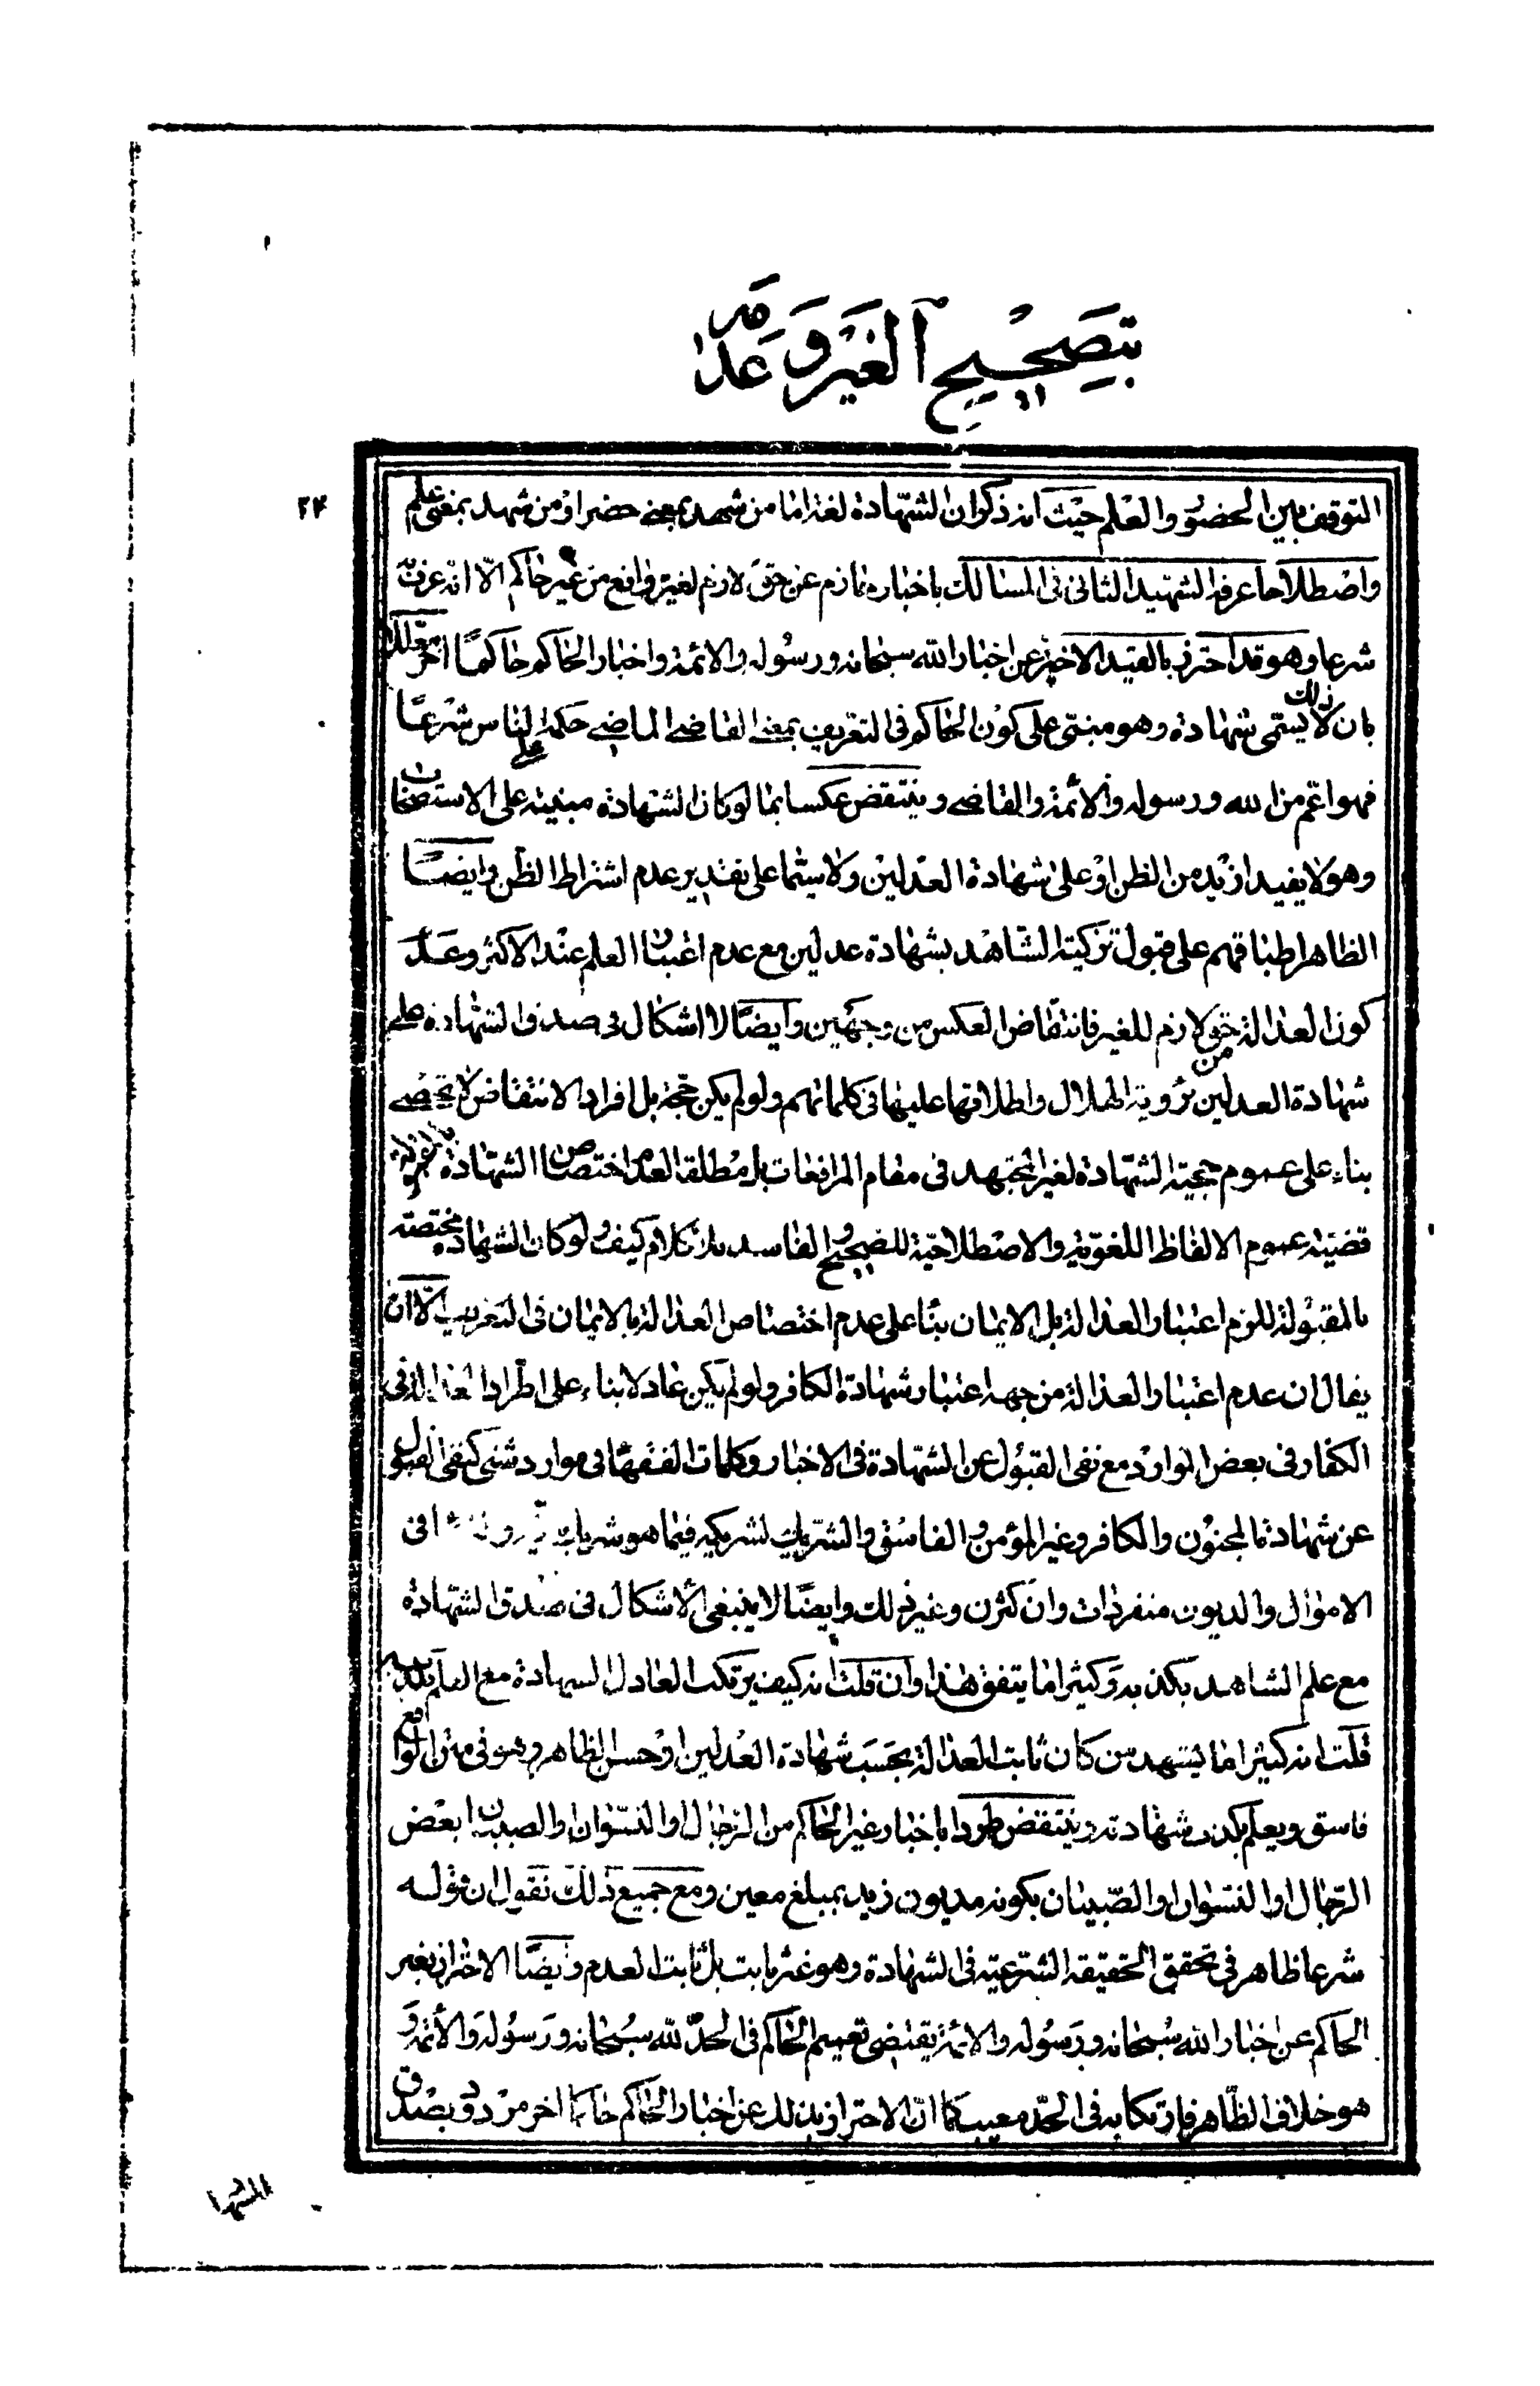 بتصحيح الغير وعدمه
٢٤
التوقف بين الحضور والعلم حيث انه ذكر ان الشهادة لغة اما من شهد بمعنى حضر او من شهد بمعنى علم
واصطلاحا عرفه الشهيد الثانى فى المسالك باخبار جازم عن حق لازم لغيره واقع من غير حاكم الّا انه عرفه
شرعا وهو قد احترز بالقيد الاخير عن اخبار الله سبحانه ورسوله والائمة واخبار الحاكم حاكما اخر معلّلا
بان ذلك لا يسمّى شهادة وهو مبنى على كون الحاكم فى التعريف بمعنى القاضى الماضى حكمه على الناس شرعا
فهو اعم من الله ورسوله والائمة والقاضى وينتقض عكسا بما لو كان الشهادة مبنية على الاستصحاب
وهو لا يفيد ازيد من الظن او على شهادة العدلين ولا سيّما على تقدير عدم اشتراط الظن وايضا
الظاهر اطباقهم على قبول تزكية الشاهد بشهادة عدلين مع عدم اعتبار العلم عند الاكثر وعدم
كون العدالة من حق لازم للغير فانتقاض العكس من وجهين وايضا لا اشكال فى صدق الشهادة على
شهادة العدلين برؤية الهلال واطلاقها عليها فى كلماتهم ولو لم يكن حجة بل افراد الانتقاض لا تحصى
بناء على عموم حجية الشهادة لغير المجتهد فى مقام المرافعات بل مطلقا لعدم اختصاص الشهادة
قضية عموم الالفاظ اللغوية والاصطلاحية للصحيح والفاسد بلا كلام كيف ولو كان الشهادة مختصة
بالمقبولة للزم اعتبار العدالة بل الايمان بناء على عدم اختصاص العدالة بالايمان فى التعريف الّا ان
يقال ان عدم اعتبار العدالة من جهة اعتبار شهادة الكافر ولو لم يكن عادلا بناء على اطراد العدالة فى
الكفار فى بعض الموارد مع نفى القبول عن الشهادة فى الاخبار وكلمات الفقهاء فى موارد شتى كنفى القبول
عن شهادة المجنون والكافر وغير المؤمن والفاسق والشريك لشريكه فيما هو شريك فى
الاموال والديون منفردات وان كثرن وغير ذلك وايضا لا ينبغى الاشكال فى صدق الشهادة
مع علم الشاهد بكذبه وكثيرا ما يتفق هذا وان قلت انه كيف يرتكب العادل الشهادة مع العلم بكذبه
قلت انه كثيرا ما يشهد من كان ثابت العدالة بحسب شهادة العدلين او حسن الظاهر وهو فى الواقع
فاسق ويعلم بكذب شهادته وينتقض طردا باخبار غير الحاكم من الرجال او النسوان او الصبيان بعض
الرجال او النسوان او الصبيان بكونه مديون زيد بمبلغ معين ومع جميع ذلك نقول ان قوله
شرعا ظاهر فى تحقق الحقيقة الشرعية فى الشهادة وهو غير ثابت بل ثابت العدم وايضا الاحتراز بغير
الحاكم عن اخبار الله سبحانه ورسوله والائمة يقتضى تعميم الحاكم فى الحد لله سبحانه ورسوله والائمة و
هو خلاف الظاهر فارتكابه فى الحد معيب كما ان الاحتراز بذلك عن اخبار الحاكم حاكما اخر مردود بصدق
الشهادة